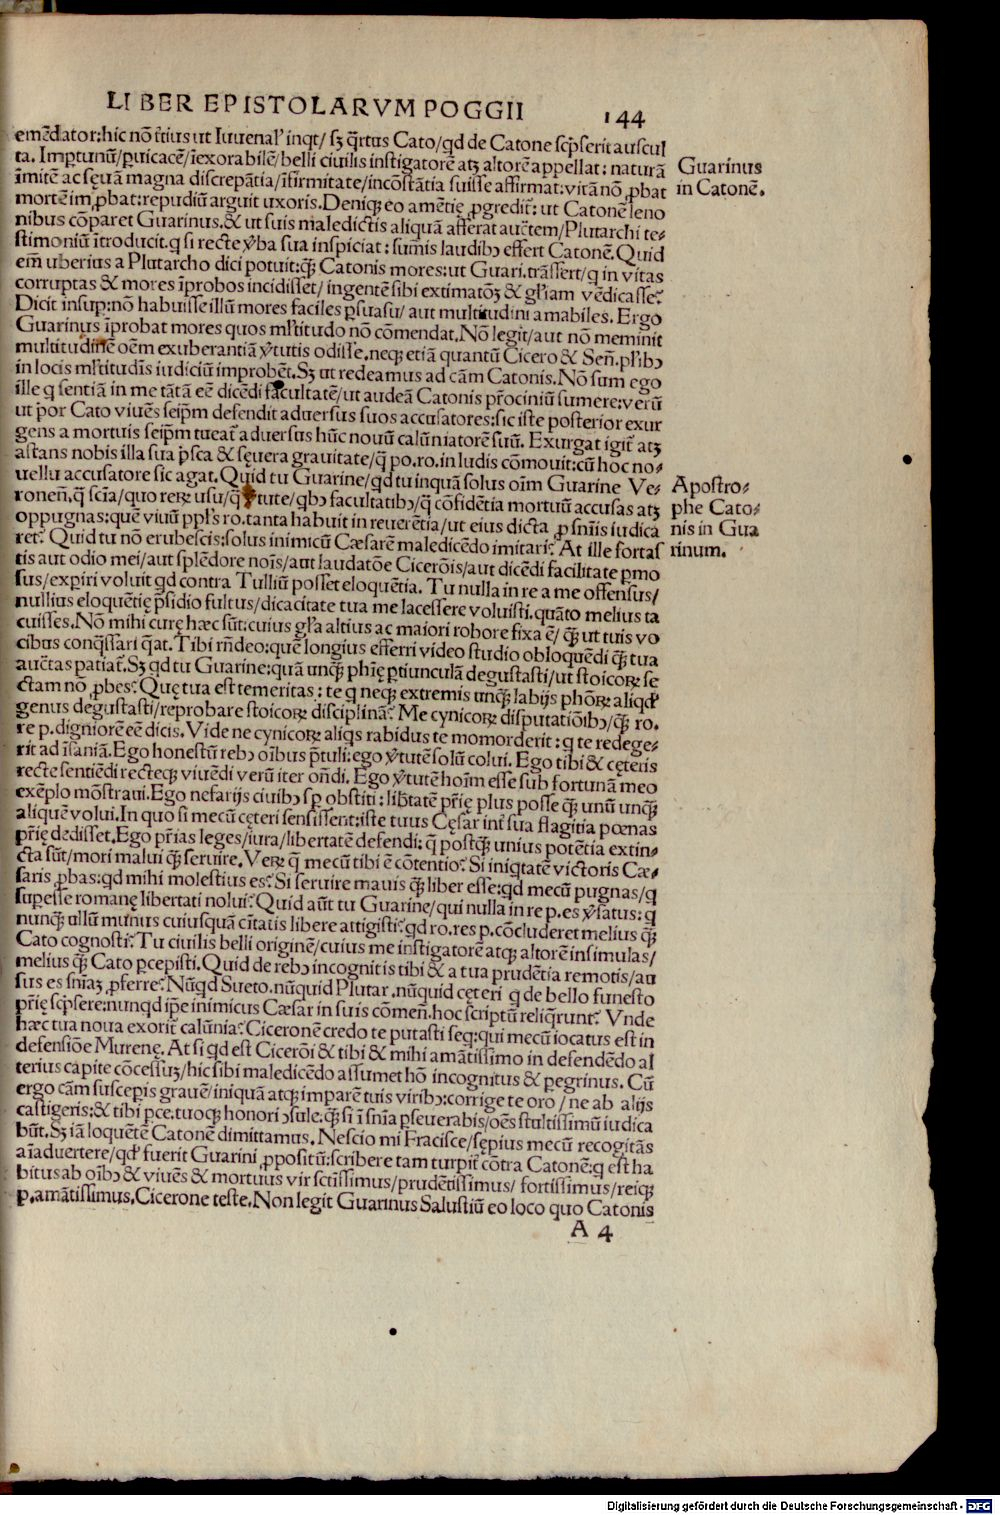 LIBER EPISTOLARVM POGGII 144
emēdator:hic nō t̄rius ut Iuuenal' inqt/ sꝫ q̄rtus Cato/qd de Catone scp̄serit auscul
ta. Imptunū/puicacē/īexorabilē/belli ciuilis instigatorē atꝫ altorē appellat: naturā
īmitē ac sęuā magna discrepātia/īfirmitate/incōstātia fuisse affirmat:vitā nō ꝓbat
mortē imꝓbat:repudiū arguit uxoris. Deniqꝫ eo amētię ꝓgredit̄: ut Catonē leno
nibus cōparet Guarinus.& ut suis maledictis aliquā afferat auc̄tem/Plutarchi te-
stimoniū ītroducit.q si recte v̄ba sua inspiciat: sum̄is laudibꝫ effert Catonē. Quid
em̄ uberius a Plutarcho dici potuit:qꝫ̄ Catonis mores:ut Guari.trāsfert/q in vitas
corruptas & mores īprobos incidisset/ ingentē sibi extimatōꝫ & gl'iam vēdicasse?
Dicit insup:nō habuisse illū mores faciles psuasu/ aut multitudini amabiles. Ergo
Guarinus īprobat mores quos ml'titudo nō cōmendat. Nō legit/aut nō meminit
multitudinē oēm exuberantiā v̄tutis odisse.neqꝫ etiā quantū Cicero & Señ.pl'ibꝫ
in locis ml'titudīs iudiciū improbēt. Sꝫ ut redeamus ad cām Catonis. Nō sum ego
ille q sentiā in me tātā eē dicēdi facultatē/ut audeā Catonis pr̄ociniū sumere:verū
ut por Cato viuēs seip̄m defendit aduersus suos accusatores:sic iste posterior exur
gens a mortuis seip̄m tueat̄ aduersus hūc nouū calūniatorē suū. Exurgat igit̄ atꝫ
astans nobis illa sua p̄sca & sęuera grauitate/q̄ po.ro.in ludis cōmouit:cū hoc no-
uellu accusatore sic agat. Quid tu Guarine/qd tu inquā solus oīm Guarine Ve-
roneñ.q̄ scīa/quo reꝝ usu/q̄ v̄tute/qbꝫ facultatibꝫ/q̄ cōfidētia mortuū accusas atꝫ
oppugnas:quē viuū ppl's ro.tanta habuit in reuerētia/ut eius dicta ꝓ sn̄iis iudica
ret? Quid tu nō erubescis:solus inimicū Cæsarē maledicēdo imitari? At ille fortas
tis aut odio mei/aut splēdore noīs/aut laudatōe Cicerōis/aut dicēdi facilitate pmo
sus/expiri voluit qd contra Tulliū posset eloquētia. Tu nulla in re a me offensus/
nullius eloquētię p̄sidio fultus/dicacitate tua me lacessere voluisti.quāto melius ta
cuisses. Nō mihi curę hæc sūt:cuius gl'a altius ac maiori robore fixa ē/ qꝫ̄ ut tuis vo
cibus conq̄ssari q̄at. Tibi rn̄deo:quē longius efferri video studio obloquēdi qꝫ̄ tua
auc̄tas patiat̄. Sꝫ qd tu Guarine:quā unqꝫ̄ phīę ptiunculā degustasti/ut stoicoꝝ se
ctam nō ꝓbes? Quę tua est temeritas: te q neqꝫ extremis unqꝫ̄ labijs phōꝝ aliqđ
genus degustasti/reprobare stoicoꝝ disciplinā? Me cynicoꝝ disputatiōibꝫ/qꝫ̄ ro.
re p.digniorē eē dicis. Vide ne cynicoꝝ aliqs rabidus te momorderit: q te redege-
rit ad īsaniā. Ego honestū rebꝫ oībus p̄tuli:ego v̄tutē solū colui. Ego tibi & cęteris
recte sentiēdi recteqꝫ viuēdi verū iter on̄di. Ego v̄tutē hoīm esse sub fortunā meo
exēplo mōstraui. Ego nefarijs ciuibꝫ sp obstiti: lib̄tatē pr̄ię plus posse qꝫ̄ unū unqꝫ̄
aliquē volui. In quo si mecū cęteri sensissent:iste tuus Cęsar int̄ sua flagitia pœnas
pr̄ię dedisset. Ego pr̄ias leges/iura/libertatē defendi: q̄ postqꝫ̄ unius potētia extin-
cta sūt/mori malui qꝫ̄ seruire. Veꝝ q̄ mecū tibi ē cōtentio? Si iniqtatē victoris Cæ-
saris ꝓbas:qd mihi molestius es? Si seruire mauis qꝫ̄ liber esse:qd mecū pugnas/q
supesse romanę libertati nolui? Quid aūt tu Guarine/qui nulla in re p.es v̄satus: q
nunqꝫ̄ ullū munus cuiusquā cīuitatis libere attigisti?qd ro.res p.cōcluderet melius qꝫ̄
Cato cognosti? Tu ciuilis belli originē/cuius me instigatorē atqꝫ altorē insimulas/
melius qꝫ̄ Cato pcepisti. Quid de rebꝫ incognitis tibi & a tua prudētia remotis/au
sus es sn̄iaꝫ ꝓferre? Nūqd Sueto.nūquid Plutar.nūquid cęteri q de bello funesto
pr̄ię scp̄sere:nunqd ip̄e inimicus Cæsar in suis cōmeñ.hoc scriptū reliq̄runt? Vnde
hæc tua noua exorit̄ calūnia? Ciceronē credo te putasti seq:qui mecū iocatus est in
defensiōe Murenę. At si qd est Cicerōi & tibi & mihi amātissimo in defendēdo al
terius capite cōcessuꝫ/hic sibi maledicēdo assumet hō incognitus & pegrinus. Cū
ergo cām suscepis grauē/iniquā atqꝫ imparē tuis viribꝫ:corrige te oro/ ne ab alijs
castigeris:& tibi pce.tuoqꝫ honori ꝯsule.qꝫ̄ si ī sn̄ia pseuerabis/oēs stultissimū iudica
būt. Sꝫ iā loquētē Catonē dimittamus. Nescio mi Frācisce/sępius mecū recogitās
aīaduertere/qđ fuerit Guarini ꝓpositū:scribere tam turpit̄ cōtra Catonē:q est ha
bitus ab oībꝫ & viuēs & mortuus vir sctissimus/prudētissimus/ fortissimus/reiqꝫ
p.amātissimus. Cicerone teste. Non legit Guarinus Salustiū eo loco quo Catonis
A 4
Guarinus
in Catonē.
Apostro-
phe Cato-
nis in Gua
rinum.
Digitalisierung gefördert durch die Deutsche Forschungsgemeinschaft - DFG